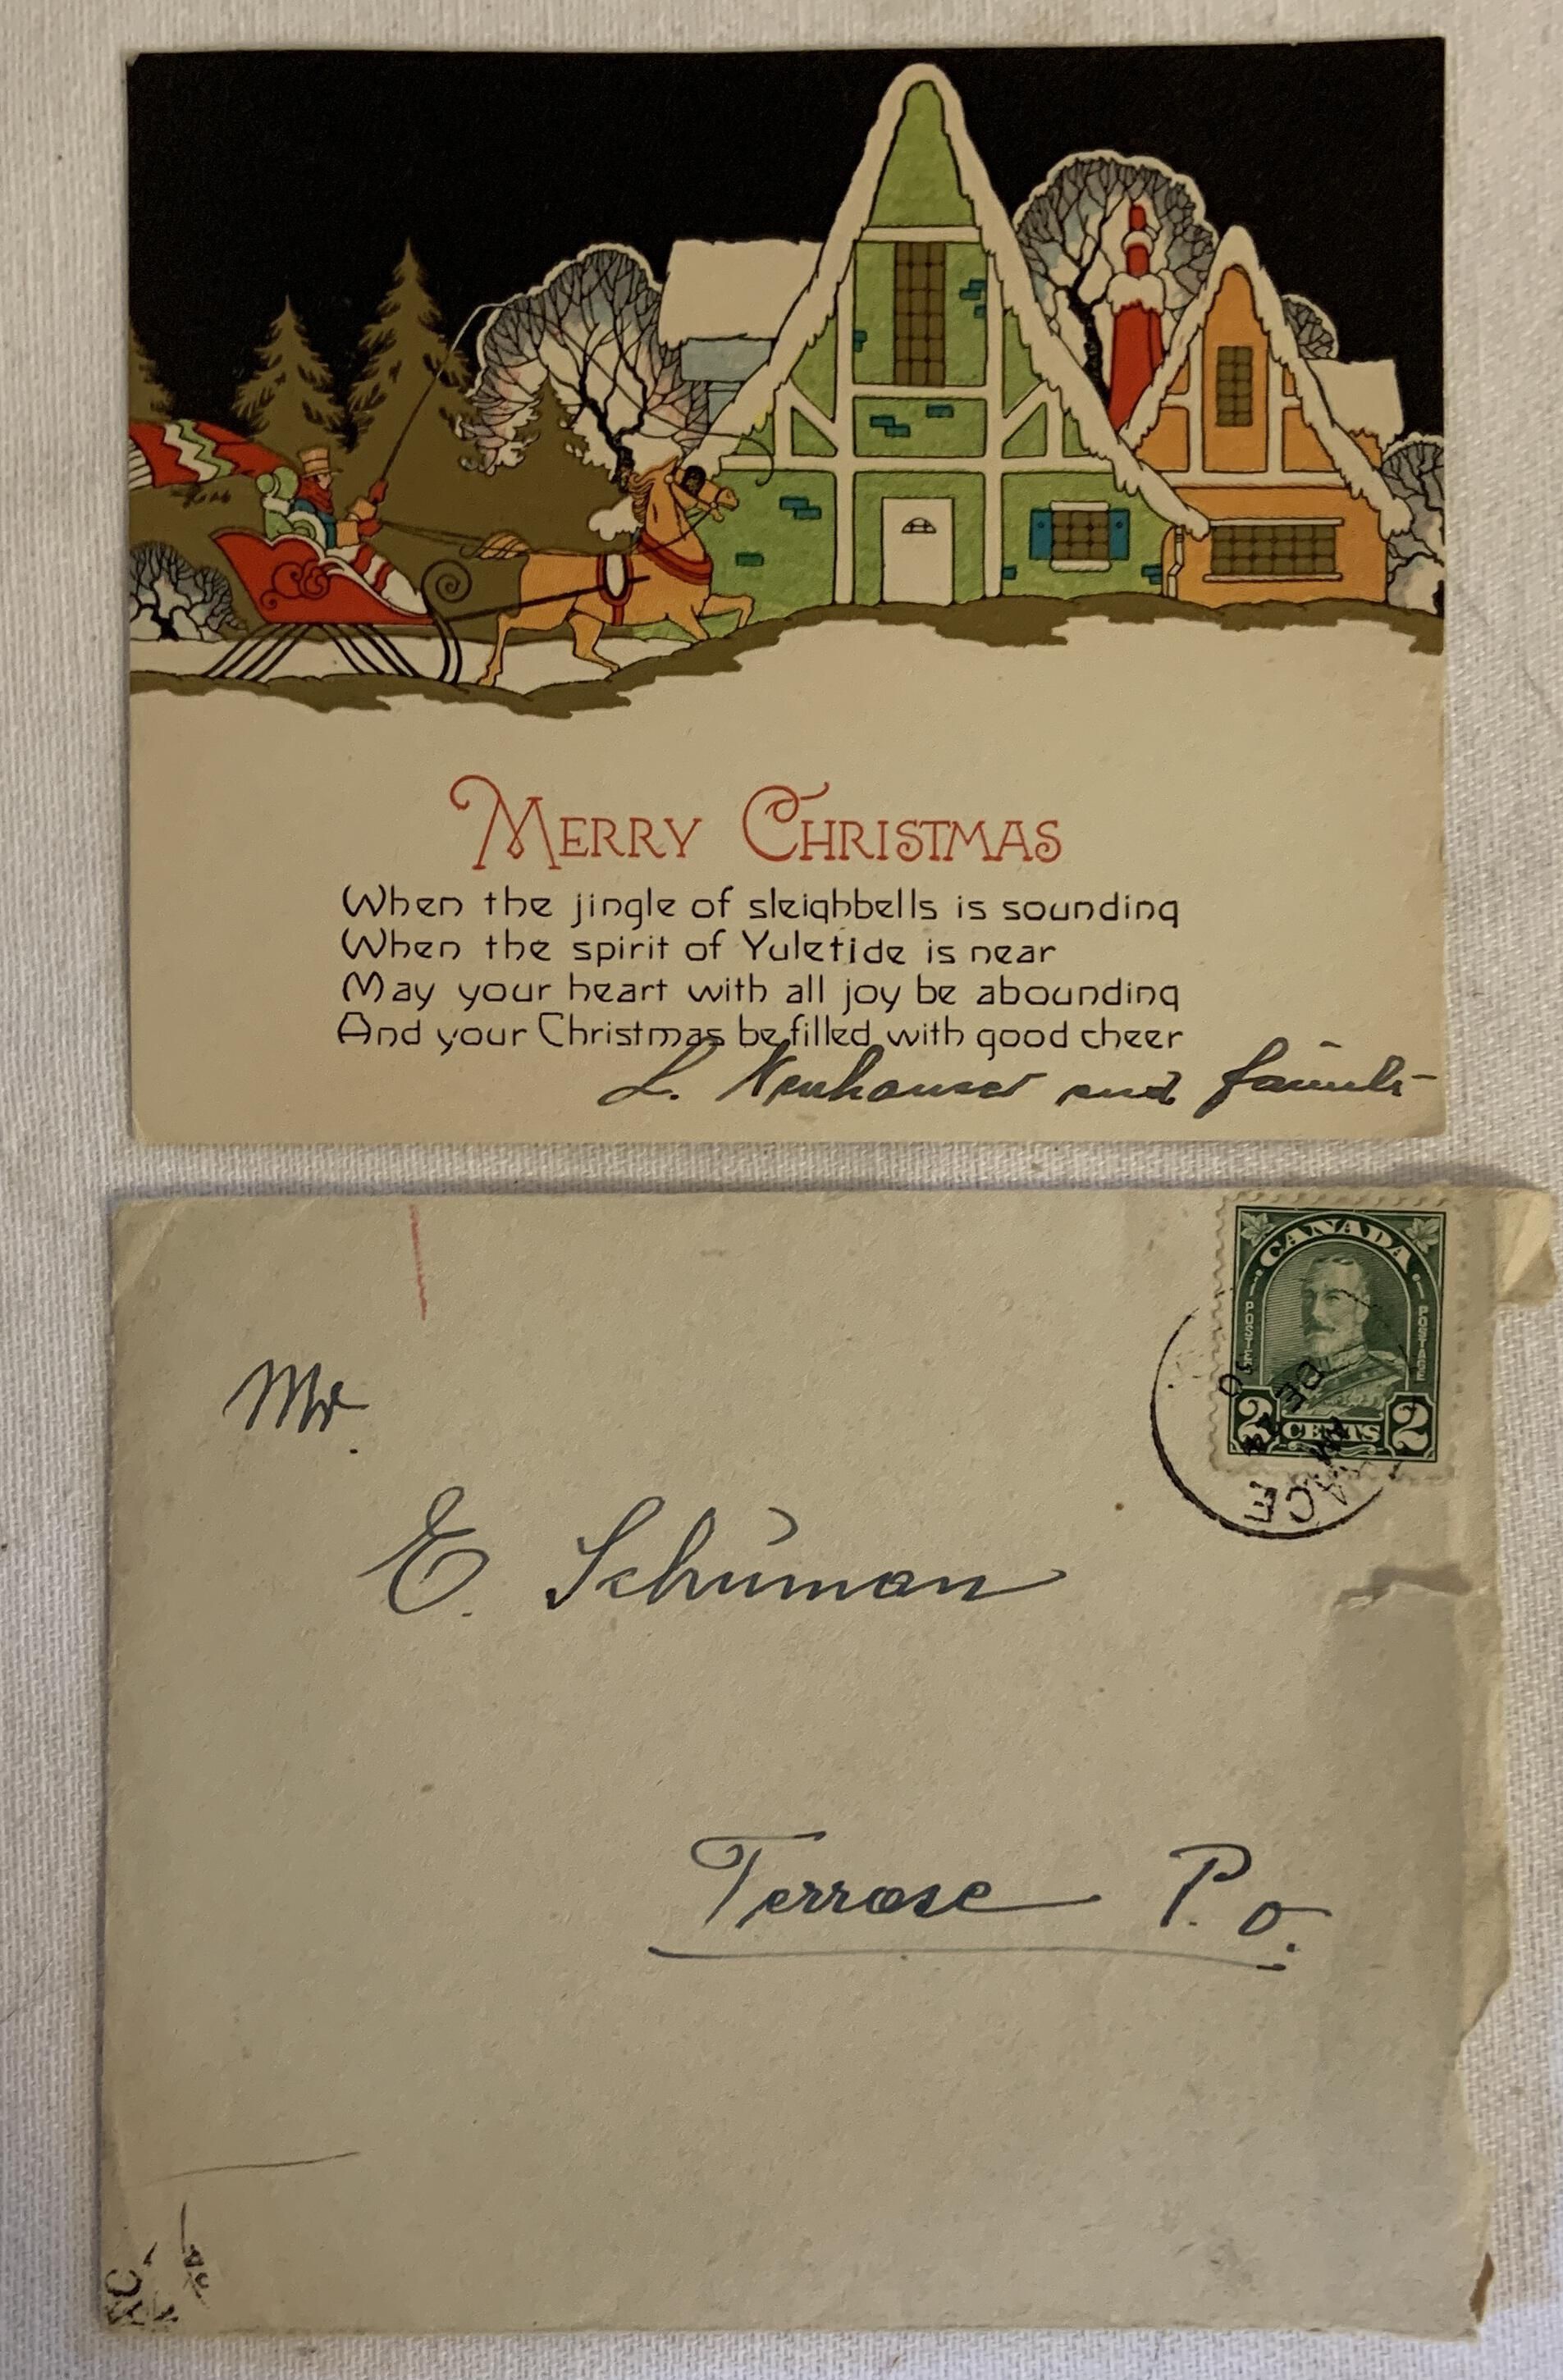 MERRY CHRISTMAS
When the jingle of sleighbells is sounding
When the spirit of Yuletide is near
May your heart with all joy be abounding
And your Christmas be filled with good cheer
L. Neuhauser and family
CANADA
POSTES POSTAGE
2 CENTS 2
DE 24
30
ACE
Mr.
E. Schuman
Terrase P.O.